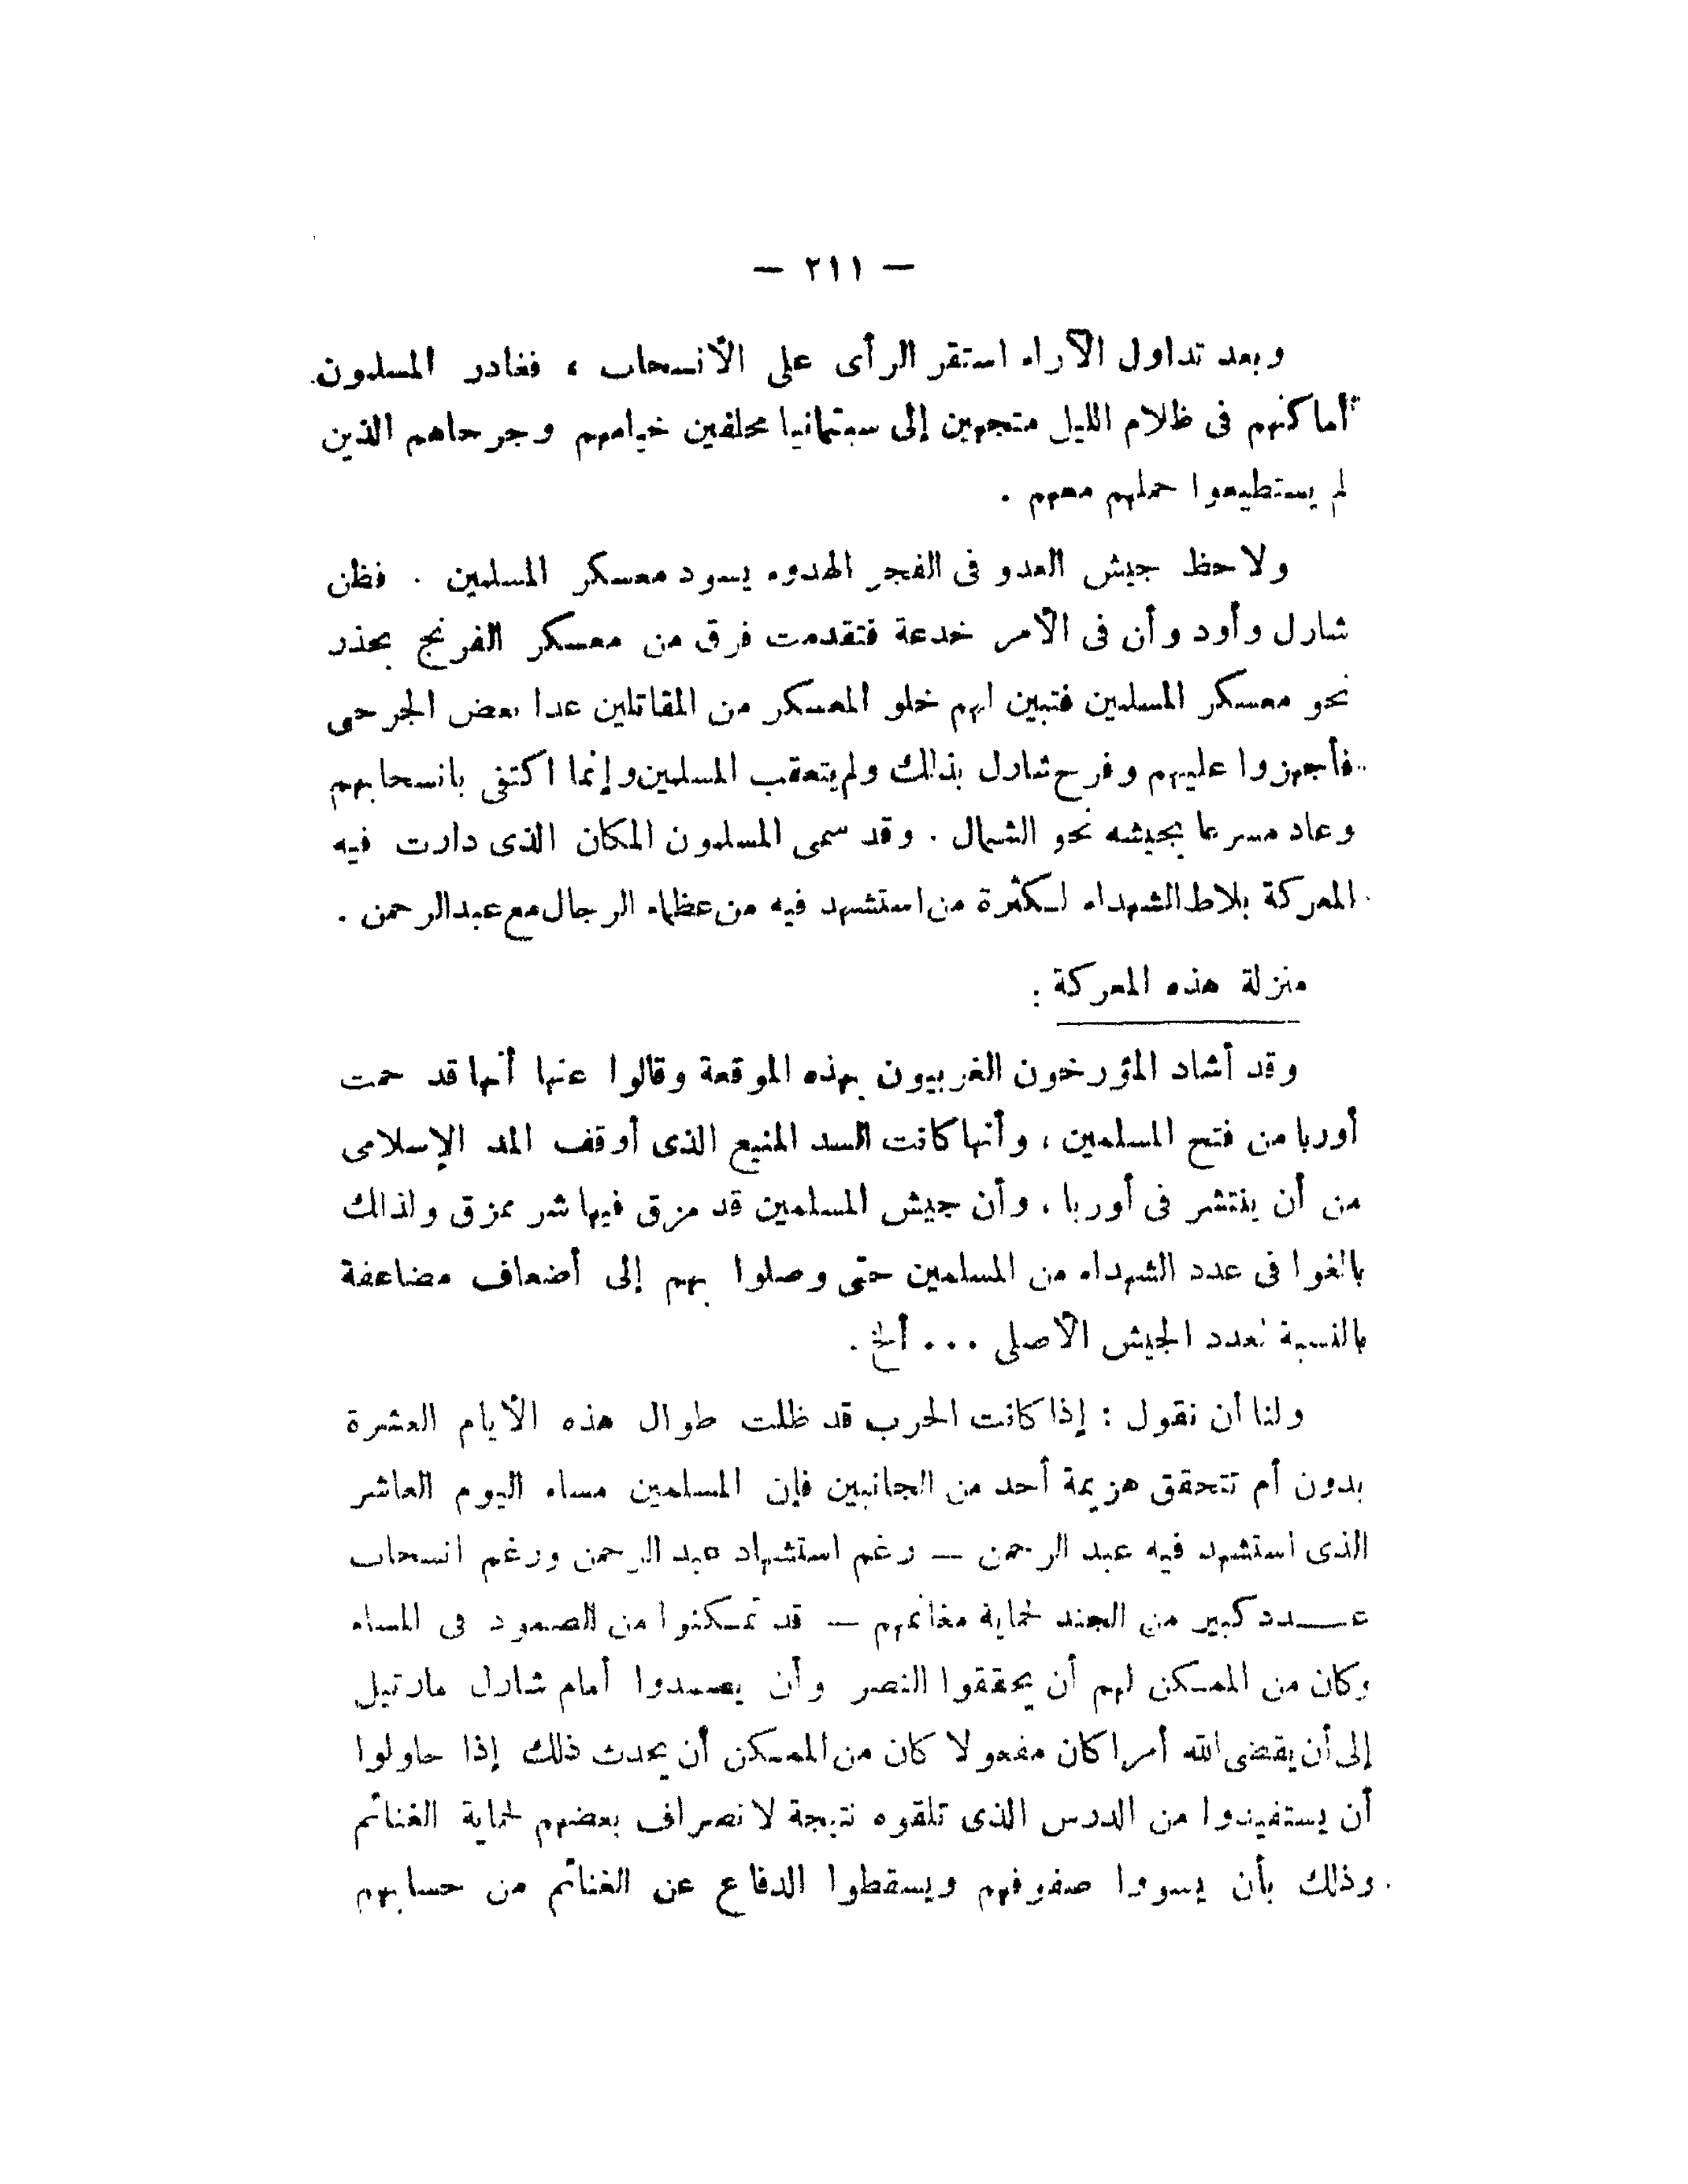 — ٢١١ —
وبعد تداول الآراء استقر الرأى على الأنسحاب ، فغادر المسلمون
أماكنهم فى ظلام الليل متجهين إلى سبتمانيا مخلفين خيامهم وجرحاهم الذين
لم يستطيعوا حملهم معهم .
ولاحظ جيش العدو فى الفجر الهدوء يسود معسكر المسلمين . فظن
شارل وأود وأن فى الأمر خدعة فتقدمت فرق من معسكر الفرنج بحذر
نحو معسكر المسلمين فتبين لهم خلو المعسكر من المقاتلين عدا بعض الجرحى
فأجهزوا عليهم وفرح شارل بذلك ولم يتعقب المسلمين وإنما اكتفى بانسحابهم
وعاد مسرعا بجيشه نحو الشمال . وقد سمى المسلمون المكان الذى دارت فيه
المعركة بلاط الشهداء لكثرة من استشهد فيه من عظماء الرجال مع عبد الرحمن .
منزلة هذه المعركة :
وقد أشاد المؤرخون الغربيون بهذه الموقعة وقالوا عنها أنها قد حمت
أوربا من فتح المسلمين ، وأنها كانت السد المنيع الذى أوقف المد الإسلامى
من أن ينتشر فى أوربا ، وأن جيش المسلمين قد مزق فيها شر ممزق ولذلك
بالغوا فى عدد الشهداء من المسلمين حتى وصلوا بهم إلى أضعاف مضاعفة
بالنسبة لعدد الجيش الأصلى ... ألخ .
ولنا أن نقول : إذا كانت الحرب قد ظلت طوال هذه الأيام العشرة
بدون أم تتحقق هزيمة أحد من الجانبين فإن المسلمين مساء اليوم العاشر
الذى استشهد فيه عبد الرحمن — رغم استشهاد عبد الرحمن ورغم انسحاب
عـــدد كبير من الجند لحماية مغانمهم — قد تمكنوا من الصمود فى المساء
وكان من الممكن لهم أن يحققوا النصر وأن يصمدوا أمام شارل مارتيل
إلى أن يقضى الله أمرا كان مفعولا كان من الممكن أن يحدث ذلك إذا حاولوا
أن يستفيدوا من الدرس الذى تلقوه نتيجة لانصراف بعضهم لحماية الغنائم
وذلك بأن يسووا صفوفهم ويسقطوا الدفاع عن الغنائم من حسابهم